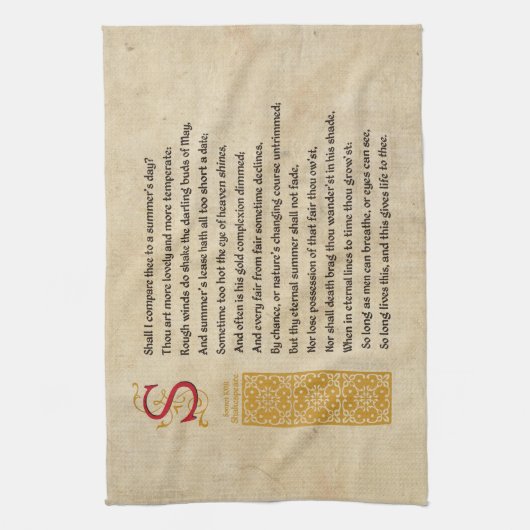 S
Sonnet XVIII
Shakespeare
Shall I compare thee to a summer's day?
Thou art more lovely and more temperate:
Rough winds do shake the darling buds of May,
And summer's lease hath all too short a date;
Sometime too hot the eye of heaven shines,
And often is his gold complexion dimmed;
And every fair from fair sometime declines,
By chance, or nature's changing course untrimmed;
But thy eternal summer shall not fade,
Nor lose possession of that fair thou ow'st,
Nor shall death brag thou wander'st in his shade,
When in eternal lines to time thou grow'st:
So long as men can breathe, or eyes can see,
So long lives this, and this gives life to thee.